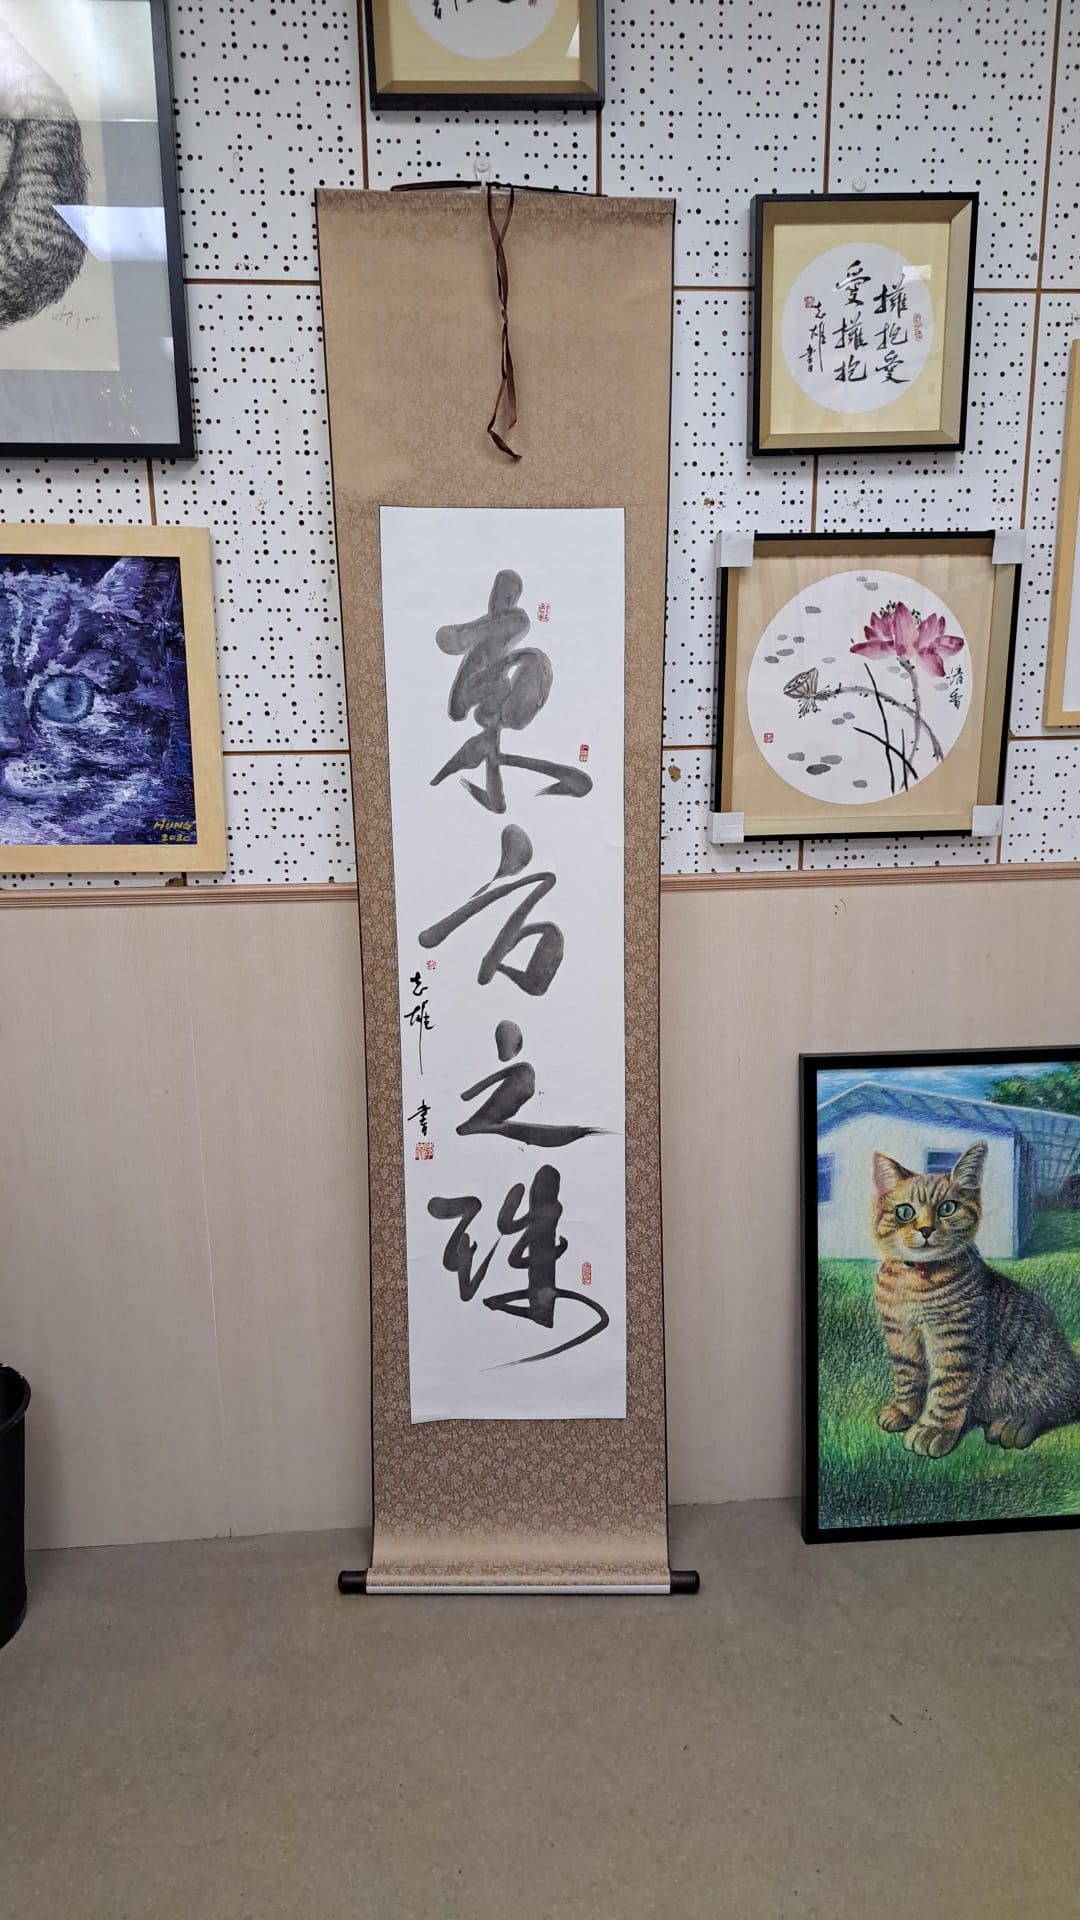 東方之珠
志雄
書
擁抱愛
愛擁抱
志雄書
清香
HUNG
2020